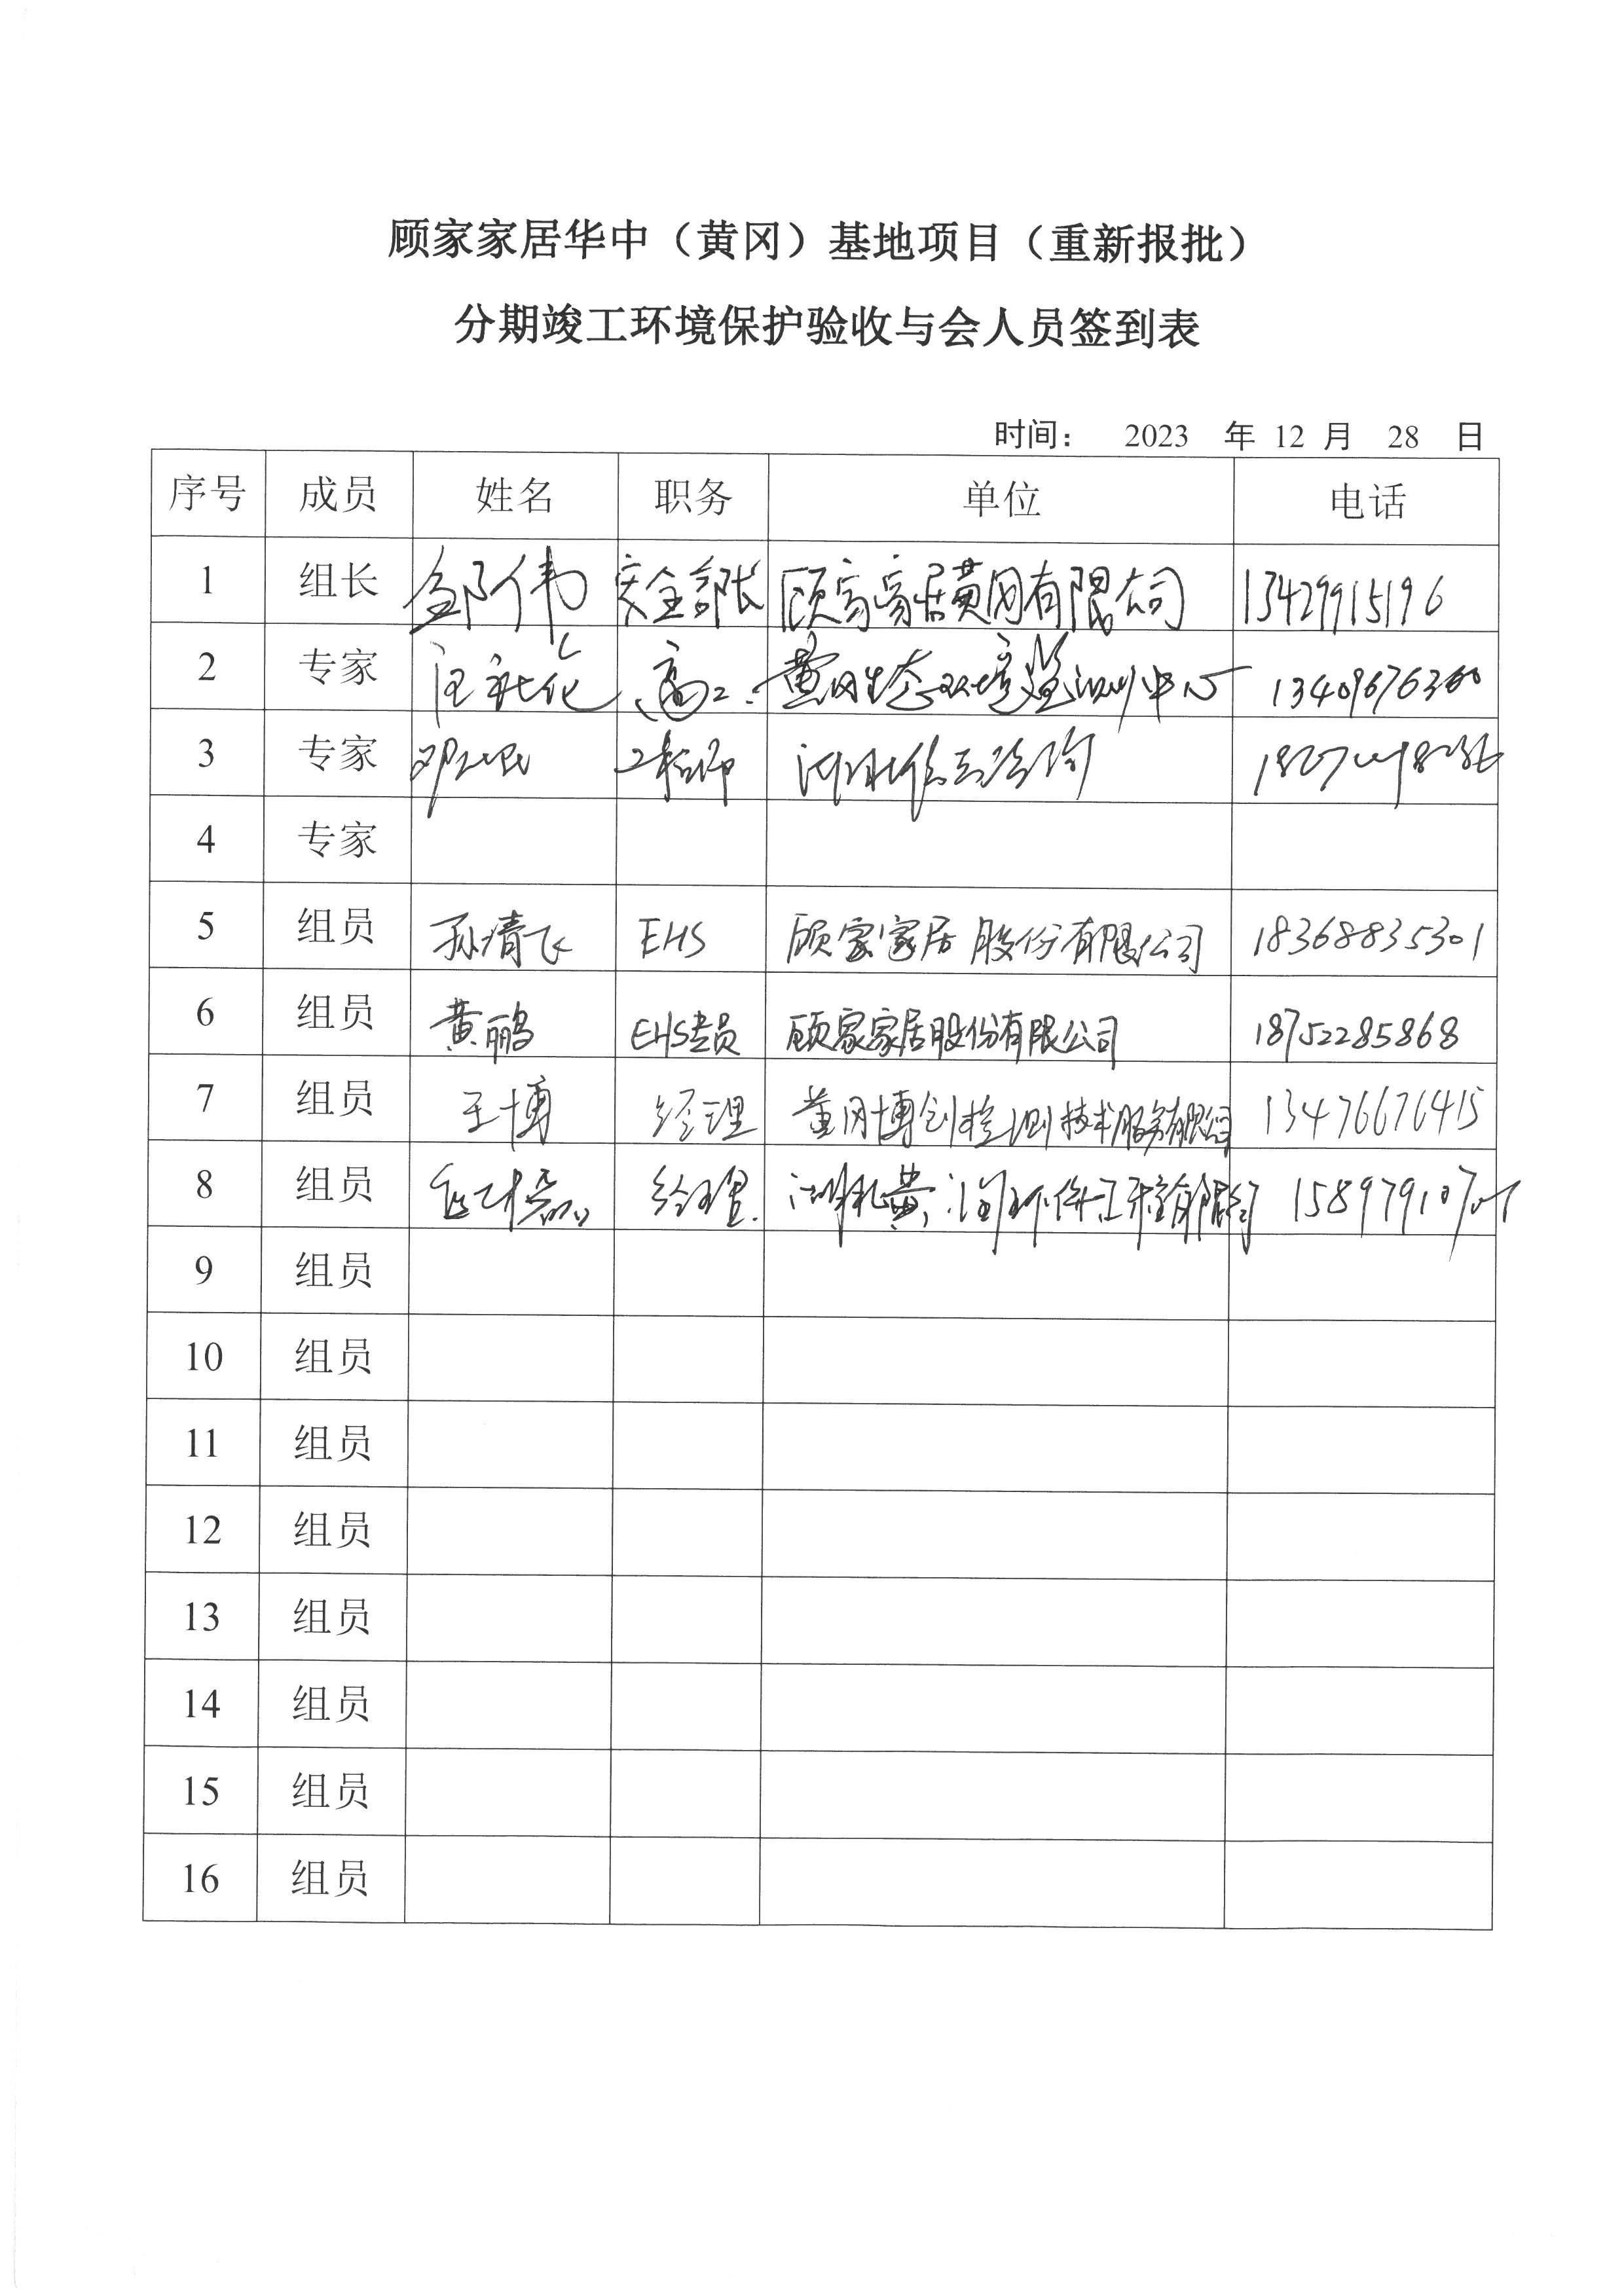 顾家家居华中（黄冈）基地项目（重新报批）
分期竣工环境保护验收与会人员签到表
时间： 2023 年 12 月 28 日
序号 成员 姓名 职务 单位 电话
1 组长 邹伟 安全部长 顾家家居黄冈有限公司 13429915196
2 专家 汪 高工 黄冈生态环境监测中心 13409676360
3 专家 邓 工程师 湖北 咨询
4 专家
5 组员 孙清飞 EHS 顾家家居股份有限公司 18368835301
6 组员 黄鹏 EHS专员 顾家家居股份有限公司 18752285868
7 组员 王博 经理 黄冈博创检测技术服务有限公司 13476676415
8 组员 经理
9 组员
10 组员
11 组员
12 组员
13 组员
14 组员
15 组员
16 组员